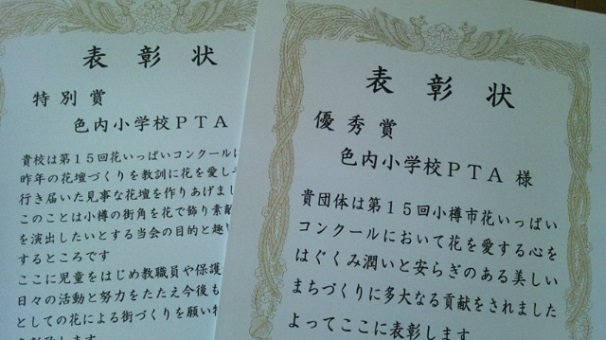 表彰状
特別賞
色内小学校PTA
貴校は第15回花いっぱいコンクールに
昨年の花壇づくりを教訓に花を愛し
行き届いた見事な花壇を作りあげまし
このことは小樽の街角を花で飾り素敵
を演出したいとする当会の目的と趣
するところです
ここに児童をはじめ教職員や保護
日々の活動と努力をたたえ今後も
としての花による街づくりを願い
表彰状
優秀賞
色内小学校PTA 様
貴団体は第15回小樽市花いっぱい
コンクールにおいて花を愛する心を
はぐくみ潤いと安らぎのある美しい
まちづくりに多大なる貢献をされました
よってここに表彰します